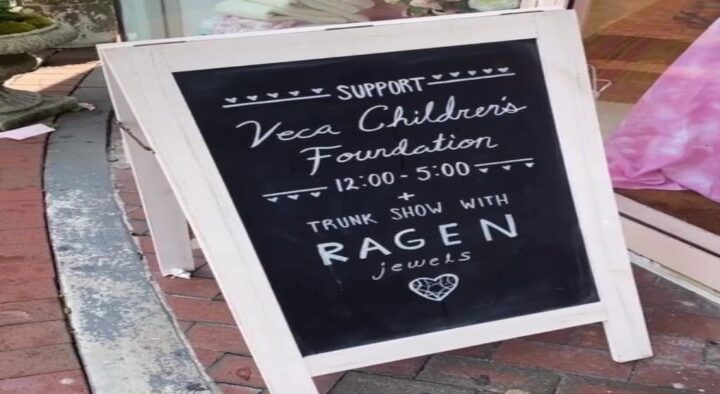 SUPPORT
Veca Children's
Foundation
12:00 - 5:00
+
TRUNK SHOW WITH
RAGEN
jewels